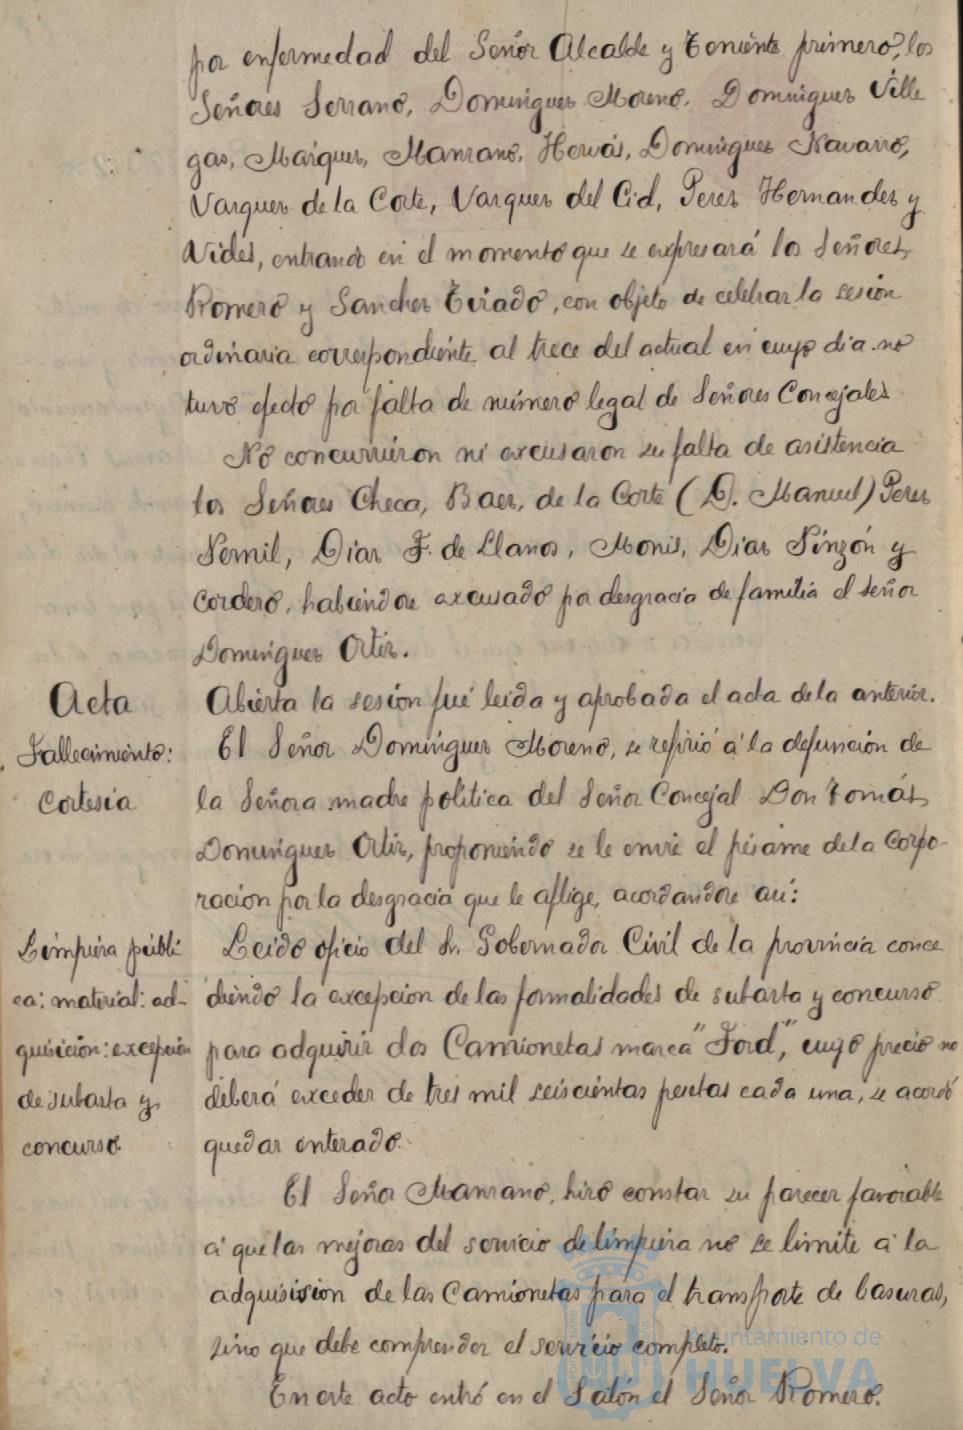 por enfermedad del Señor Alcalde y Teniente primero, los
Señores Serrano, Dominguez Moreno, Dominguez Ville
gas, Marquez, Manzano, Hervás, Dominguez Navarro,
Vazquez de la Corte, Vazquez del Cid, Perez Hernandez y
Vides, entrando en el momento que se expresará los Señores
Romero y Sanchez Tirado, con objeto de celebrar la sesion
ordinaria correspondiente al trece del actual en cuyo dia no
tuvo efecto por falta de número legal de Señores Concejales
No concurrieron ni excusaron su falta de asistencia
los Señores Checa, Baez, de la Corte (D. Manuel) Perez
Nemil, Diaz F. de Llanos, Monis, Diaz Pinzón y
Cordero, habiendose excusado por desgracia de familia el señor
Dominguez Ortiz.
Acta
Abierta la sesión fué leida y aprobada el acta de la anterior.
Fallecimiento:
Cortesia
El Señor Dominguez Moreno, se refirió á la defunción de
la Señora madre politica del Señor Concejal Don Tomás
Dominguez Ortiz, proponiendo se le envie el pésame de la Corpo-
racion por la desgracia que le aflige, acordandose asi:
Limpieza públi
ca: material: ad-
quisición: excepción
de subasta y
concurso
Leido oficio del Sr. Gobernador Civil de la provincia conce
diendo la excepcion de las formalidades de subasta y concurso
para adquirir dos Camionetas marca "Ford", cuyo precio no
deberá exceder de tres mil seiscientas pesetas cada una, se acordó
quedar enterado.
El Señor Manzano, hizo constar su parecer favorable
á que las mejoras del servicio de limpieza no se limite á la
adquisision de las Camionetas para el transporte de basuras,
sino que debe comprender el servicio completo.
En este acto entró en el Salón el Señor Romero.
Ayuntamiento de
HUELVA